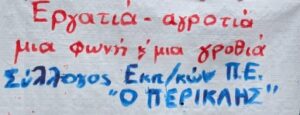 Εργατιά - αγροτιά
μια φωνή ϗ μια γροθιά
Σύλλογος Εκπ/κών Π.Ε.
"Ο ΠΕΡΙΚΛΗΣ"